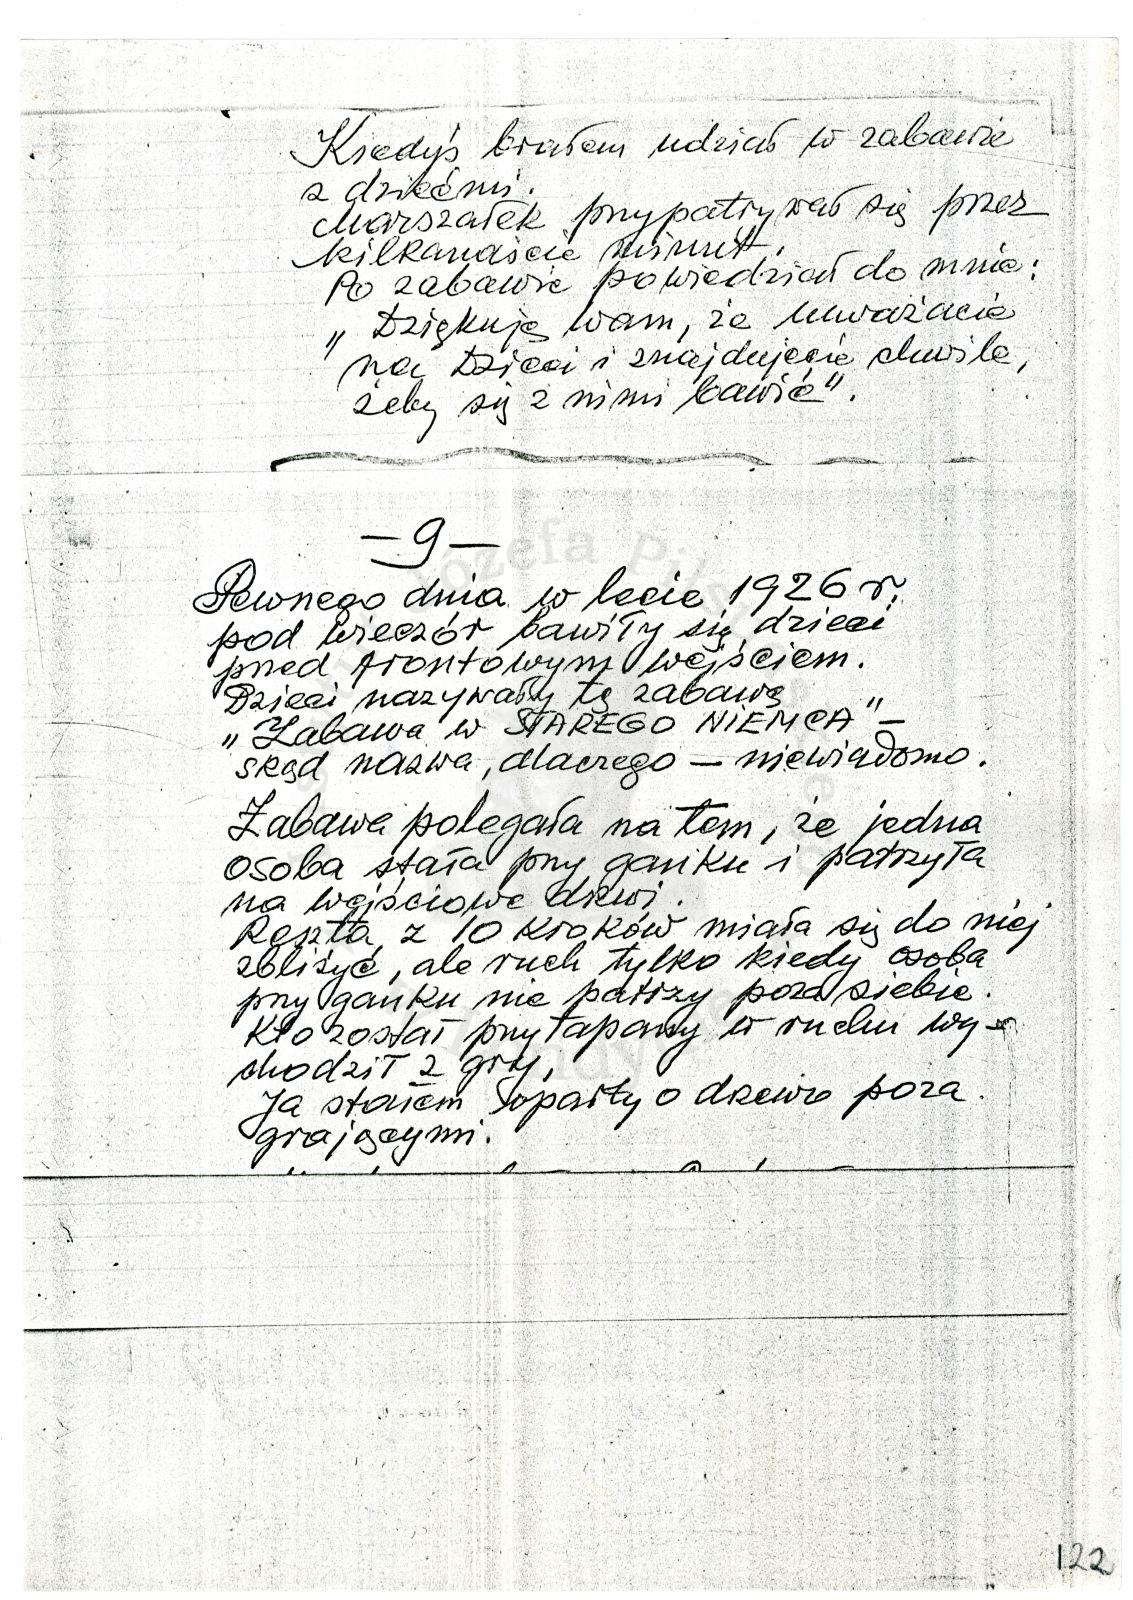 Kiedyś brałem udział w zabawie
z dziećmi.
Marszałek przypatrywał się przez
kilkanaście minut.
Po zabawie powiedział do mnie:
„Dziękuję wam, że uważacie
na Dzieci i znajdujecie chwile,
żeby się z nimi bawić”.
—9—
Pewnego dnia w lecie 1926 r.
pod wieczór bawiły się dzieci
przed frontowym wejściem.
Dzieci nazywały tę zabawę
„Zabawa w STAREGO NIEMCA” —
skąd nazwa, dlaczego — niewiadomo.
Zabawa polegała na tem, że jedna
osoba stała przy ganku i patrzyła
na wejściowe drzwi.
Reszta z 10 kroków miała się do niej
zbliżyć, ale ruch tylko kiedy osoba
przy ganku nie patrzy poza siebie.
Kto został przyłapany w ruchu wy-
chodził z gry.
Ja stałem oparty o drzewo poza
grającymi.
122